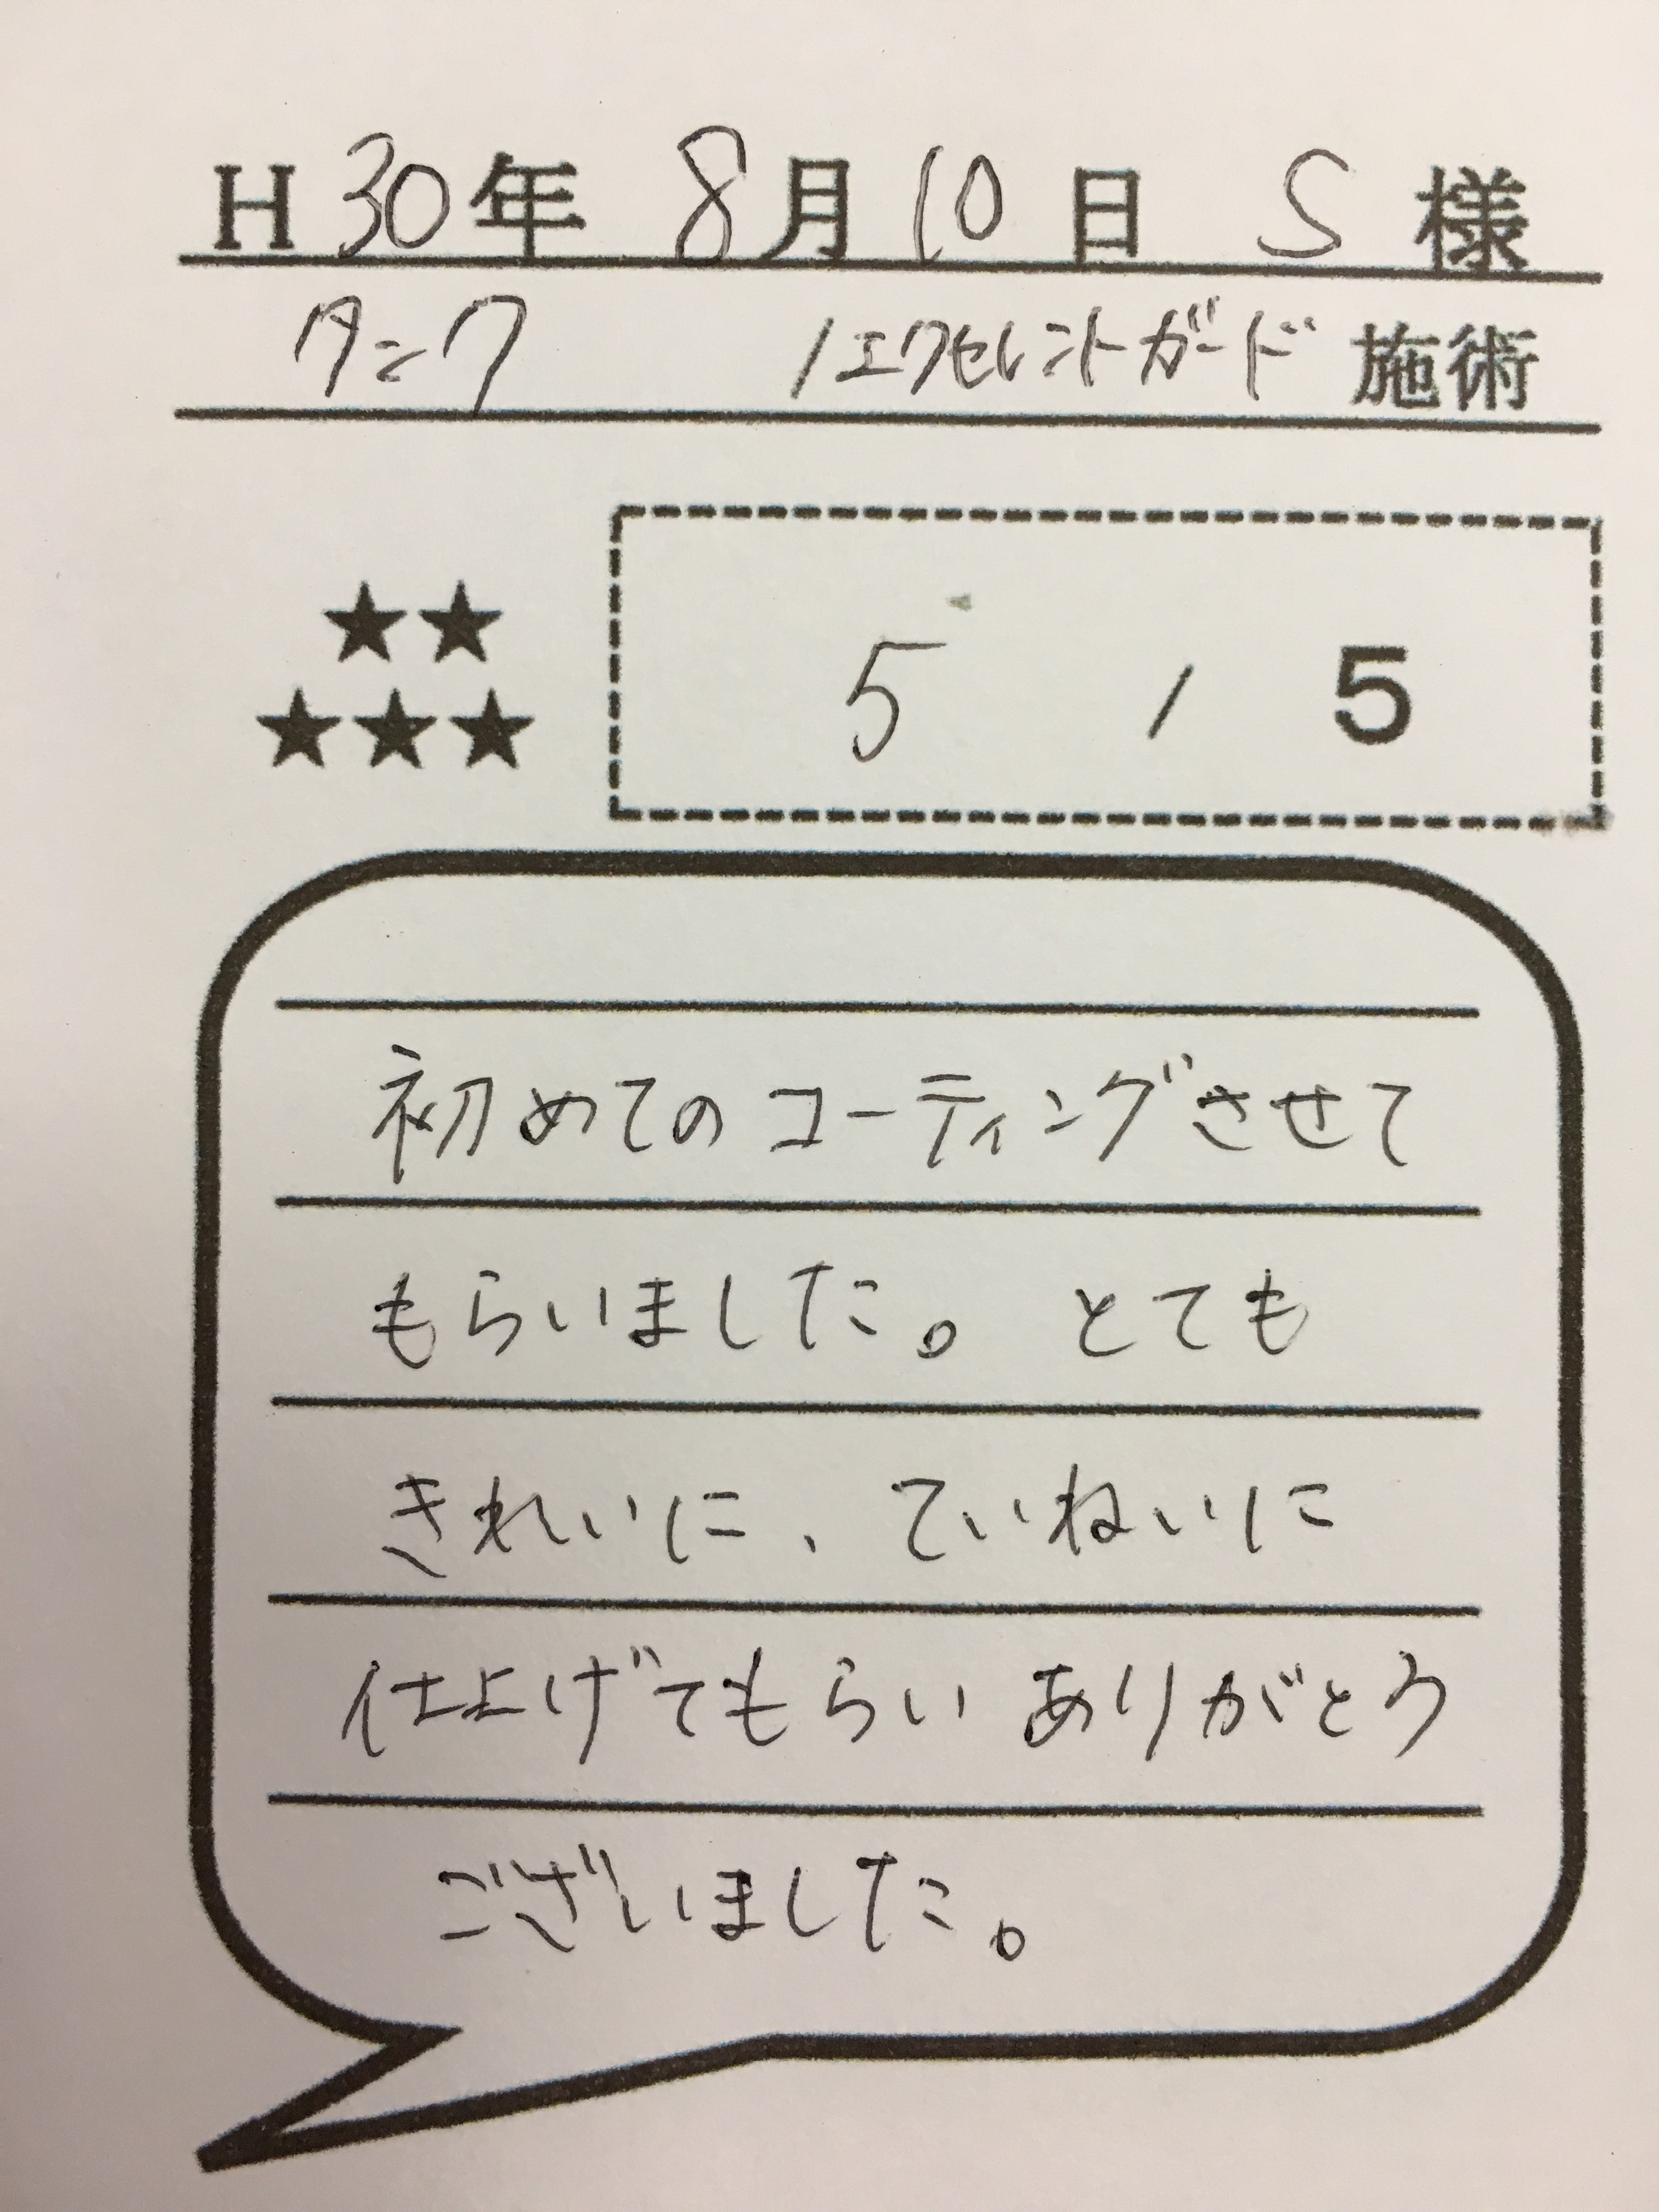 H30年 8月10日 S様
タンク /エクセレントガード 施術
★★
★★★
5 / 5
初めてのコーティングさせて
もらいました。とても
きれいに、ていねいに
仕上げてもらい ありがとう
ございました。